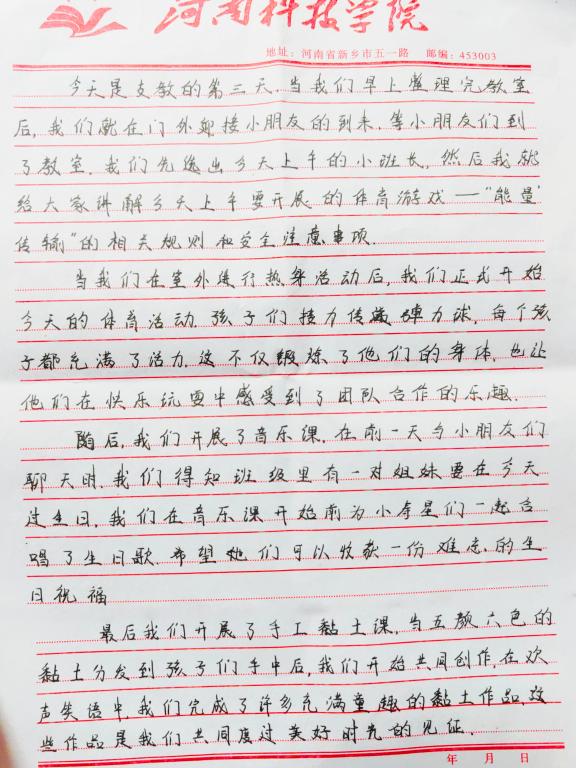 河南科技学院
地址：河南省新乡市五一路 邮编：453003
今天是支教的第三天，当我们早上整理完教室
后，我们就在门外迎接小朋友的到来，等小朋友们到
了教室，我们先选出今天上午的小班长，然后我就
给大家讲解今天上午要开展的体育游戏——“能量
传输”的相关规则和安全注意事项.
当我们在室外进行热身活动后，我们正式开始
今天的体育活动，孩子们接力传递弹力球，每个孩
子都充满了活力，这不仅锻炼了他们的身体，也让
他们在快乐玩耍中感受到了团队合作的乐趣.
随后，我们开展了音乐课，在前一天与小朋友们
聊天时，我们得知班级里有一对姐妹要在今天
过生日，我们在音乐课开始前为小寿星们一起合
唱了生日歌，希望她们可以收获一份难忘的生
日祝福
最后我们开展了手工黏土课，当五颜六色的
黏土分发到孩子们手中后，我们开始共同创作，在欢
声笑语中，我们完成了许多充满童趣的黏土作品，这
些作品是我们共同度过美好时光的见证.
年 月 日